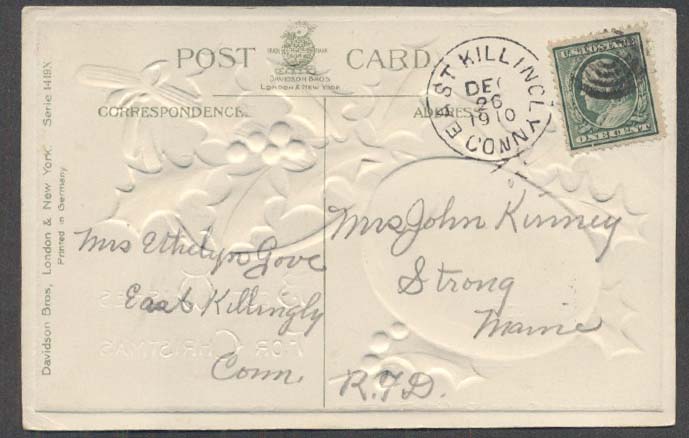 POST CARD
TRADE MARK
DAVIDSON BROS
LONDON & NEW YORK
CORRESPONDENCE.
ADDRESS
EAST KILLINGLY CONN
DEC
26
1910
U.S. POSTAGE
ONE CENT
Mrs Ethelyn Gove
East Killingly
Conn.
Mrs John Kinney
Strong
Maine
R.F.D.
Davidson Bros, London & New York. Serie 1419X
Printed in Germany
FOR CHRISTMAS